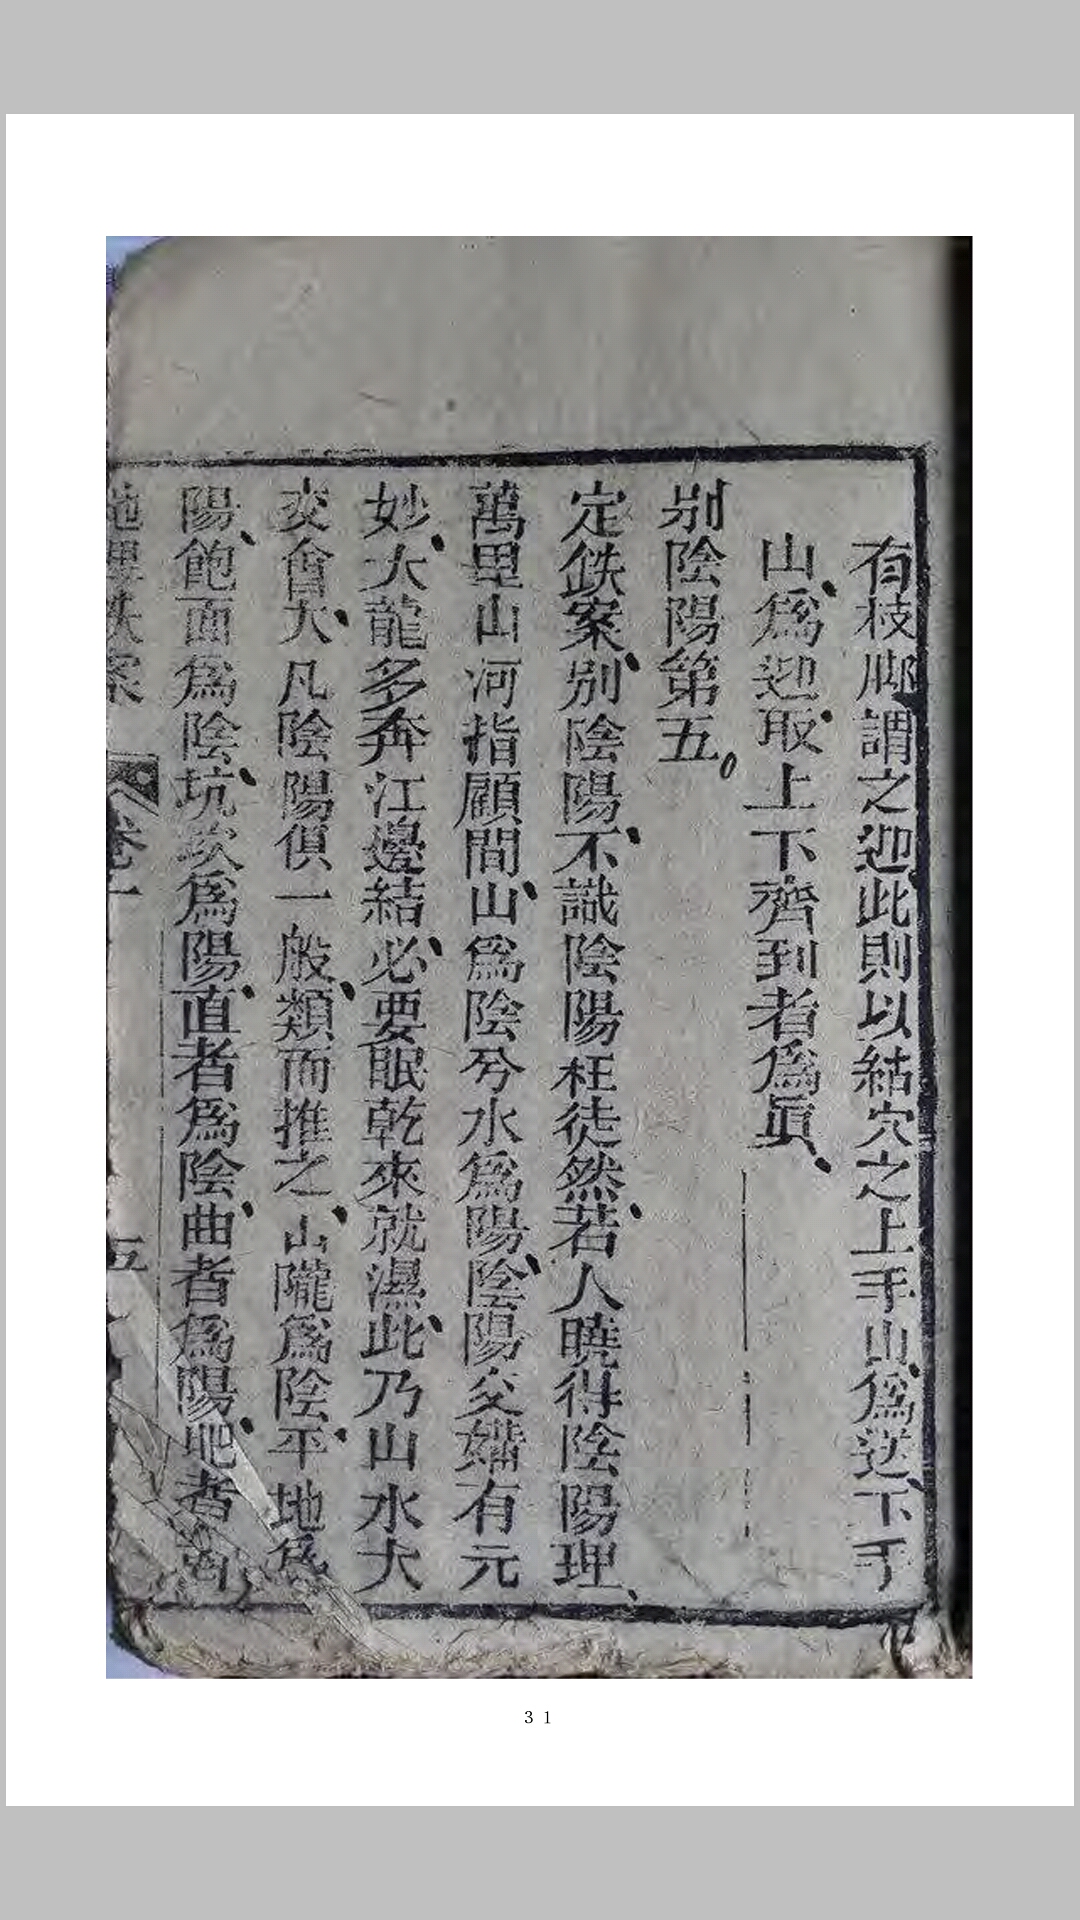 有枝脚謂之迎此則以結穴之上手山爲送下手
山爲迎取上下齊到者爲眞
别陰陽第五
定鉄案别陰陽不識陰陽枉徒然若人曉得陰陽理
萬里山河指顧間山爲陰兮水爲陽陰陽交媾有元
妙大龍多奔江邊結必要眠乾來就濕此乃山水大
交會大凡陰陽俱一般類而推之山隴爲陰平地爲
陽飽面爲陰坑坎爲陽直者爲陰曲者爲陽肥者
地理鉄案 卷一 五
31